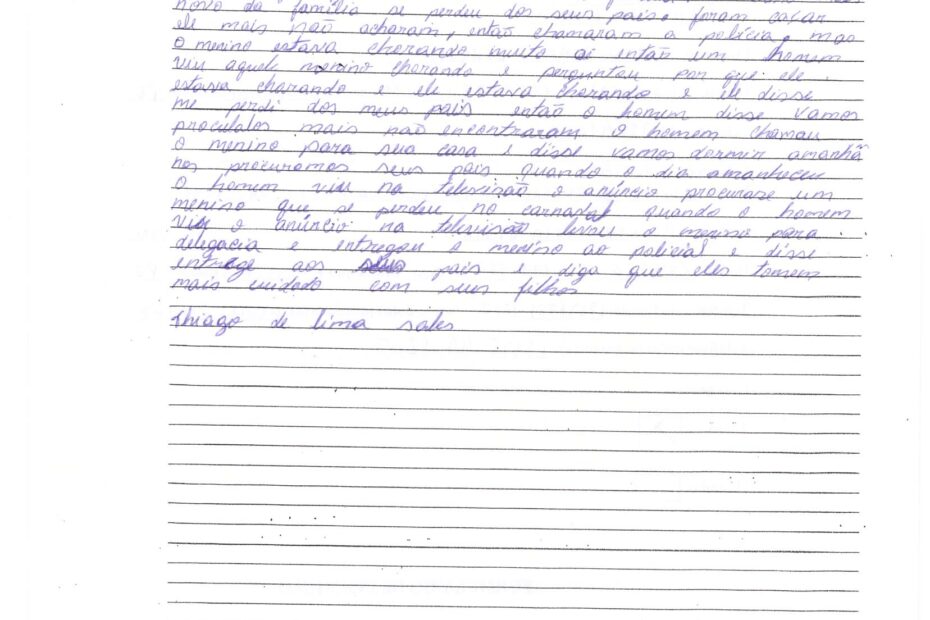 novo da família se perdeu dos seus pais. foram caçar
ele mais não acharam, então chamaram a polícia, mao
o menino estava chorando muito ai então um homem
viu aquele menino chorando e perguntou por que ele
estava chorando e ele estava chorando e ele disse
me perdi dos meus pais então o homem disse vamos
proculalos mais não encontraram o homem chamou
o menino para sua casa e disse vamos dormir amanhã
nos procuramos seus pais quando o dia amanheceu
o homem viu na televisão o anúncio procurase um
menino que se perdeu no carnaval quando o homem
viu o anúncio na televisão levou o menino para
delegacia e entregou o menino ao policial e disse
entrege aos seus pais e diga que eles tomem
mais cuidado com seus filhos
Thiago de lima sales